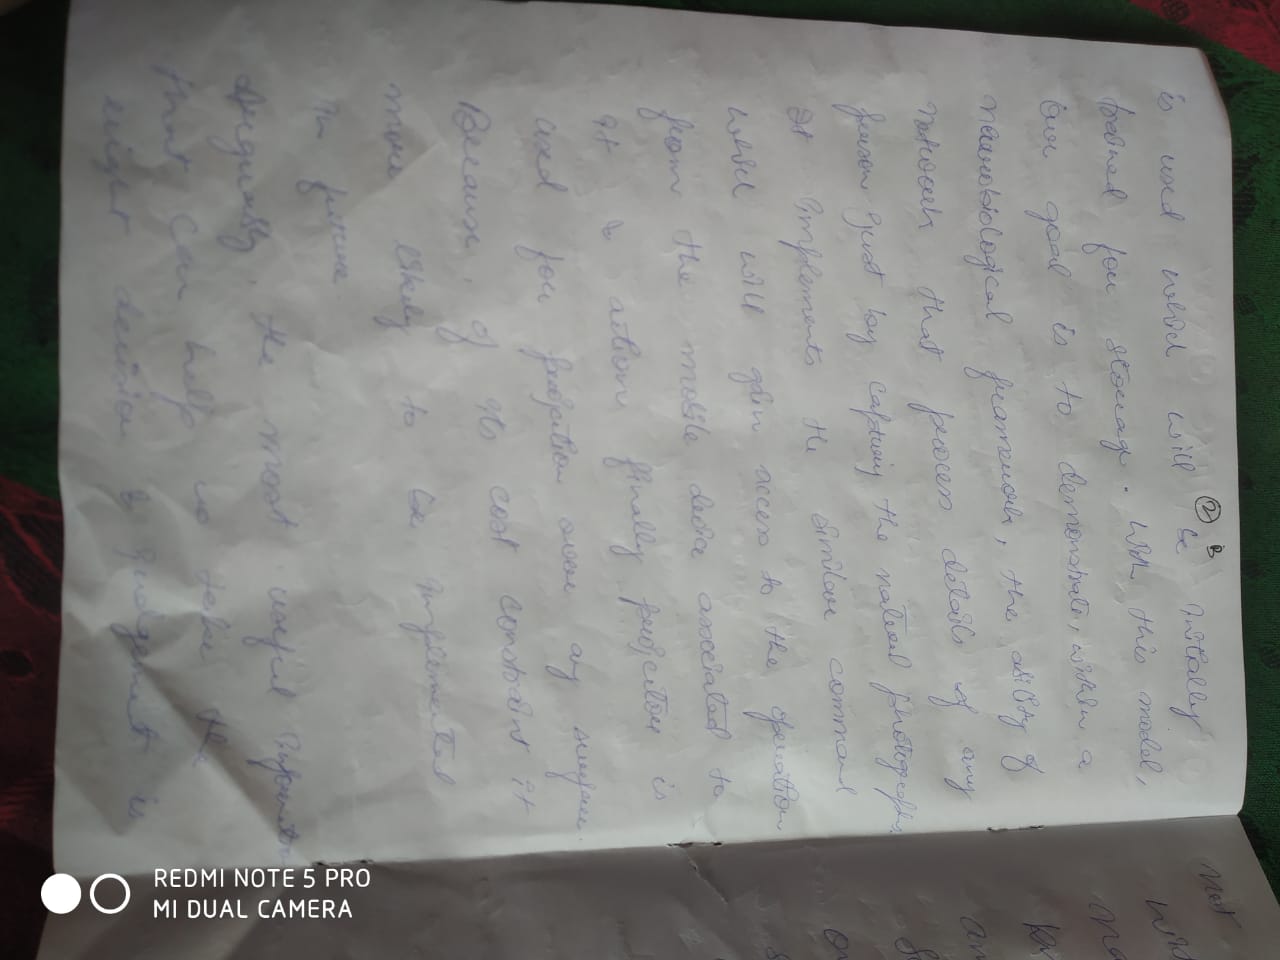 ② B
is used which will be initially
trained for storage. With this model,
our goal is to demonstrate, within a
neurobiological framework, the ability of
network that process details of any
person just by capturing the natural photographs.
It implements the similar command
which will gain access to the operation
from the mobile device associated to
it &
action finally projection is
used for projection over any surface.
Because, of its cost constraint it
more likely to be implemented
in future.
Arguably, the most useful information
that can help us take the
right decision & judgement is
not
REDMI NOTE 5 PRO
MI DUAL CAMERA